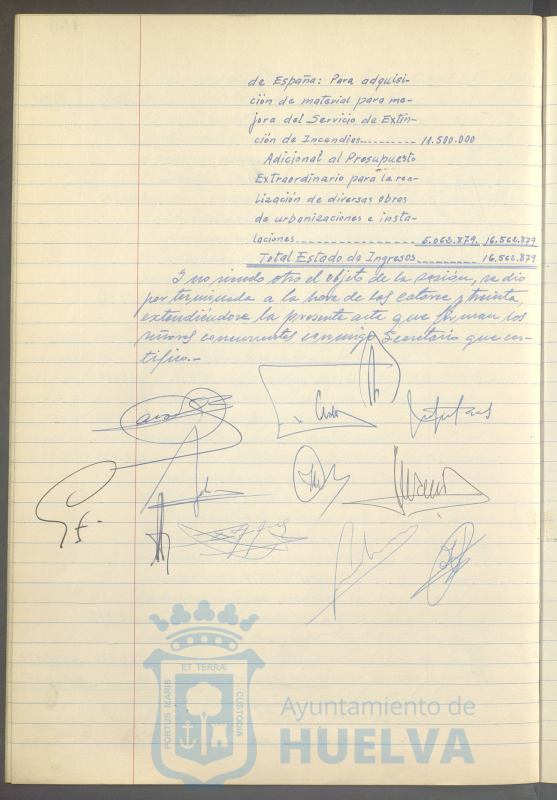 de España: Para adquisi-
ción de material para me-
jora del Servicio de Extin-
ción de Incendios---------- 11.500.000
Adicional al Presupuesto
Extraordinario para la rea-
lización de diversas obras
de urbanizaciones e insta-
laciones---------- 5.062.879, 16.562.879
Total Estado de Ingresos---------- 16.562.879
Y no siendo otro el objeto de la sesión, se dió
por terminada a la hora de las catorce y treinta,
extendiéndose la presente acta que firman los
señores concurrentes conmigo Secretario que cer-
tifico.-
ET TERRÆ
PORTUS MARIS
CUSTODIA
Ayuntamiento de
HUELVA